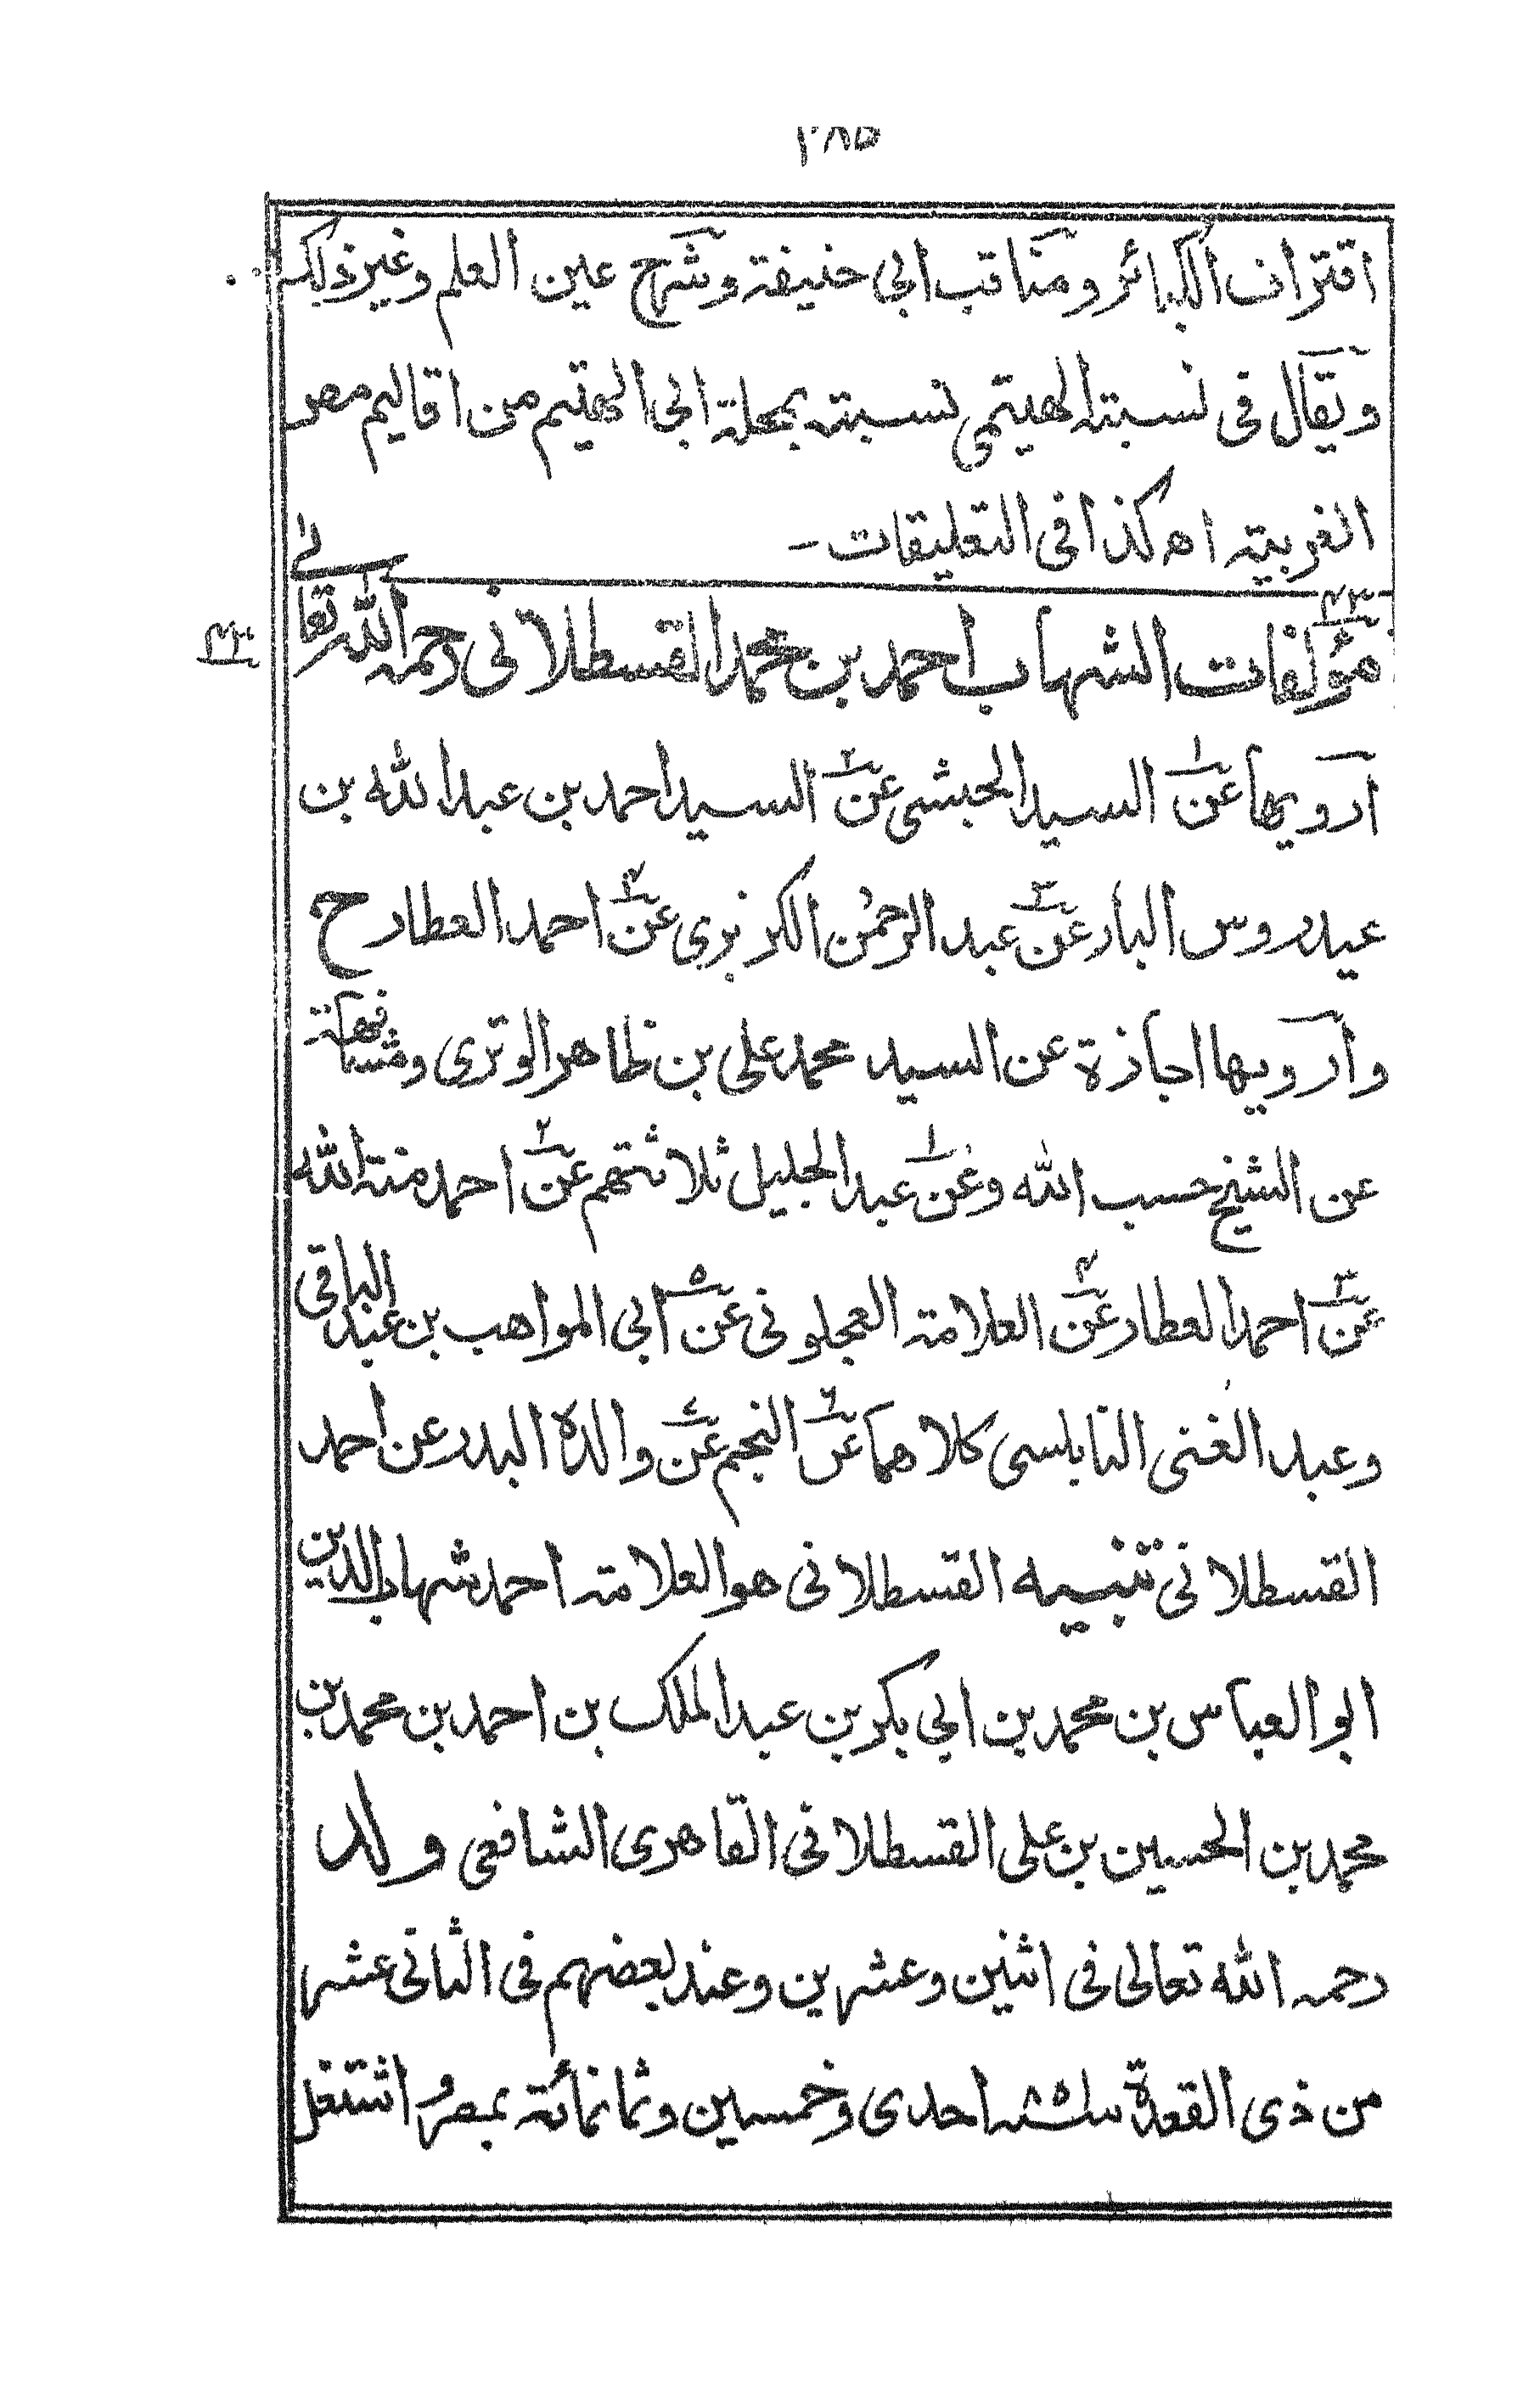 ٢٨٥
اقتراف الكبائر ومناقب ابي حنيفة وشرح عين العلم وغير ذلك
ويقال فى نسبته الهيتمى نسبته بمحلة ابي الهيتم من اقاليم مصر
الغربيته اه كذا فى التعليقات ـ
٤٣ مؤلفات الشهاب احمد بن محمد القسطلانى رحمه الله تعالى ٤٣
آرويها عن١ السيد الحبشى عن٢ السيد احمد بن عبد الله بن
عيدروس البار عن٣ عبد الرحمٰن الكزبرى عن٤ احمد العطار ح
وآرويها اجازة عن السيد محمد على بن ظاهر الوترى ومشافهة
عن الشيخ حسب الله وعن١ عبد الجليل ثلاثتهم عن٢ احمد منة الله
عن٣ احمد العطار عن٤ العلامته العجلونى عن٥ ابي المواهب بن عبد الباقى
وعبد الغنى النابلسى كلاهما عن٦ النجم عن٧ والده البدر عن احمد
القسطلانى تنبيه القسطلانى هو العلامته احمد شهاب الدين
ابو العباس بن محمد بن ابي بكر بن عبد الملك بن احمد بن محمد بن
محمد بن الحسين بن على القسطلانى القاهرى الشافعى ولد
رحمه الله تعالى فى اثنين وعشرين وعند بعضهم فى الثانى عشر
من ذى القعدة سنة ٨٥١ احدى وخمسين وثمانمائة بمصر واشتغل